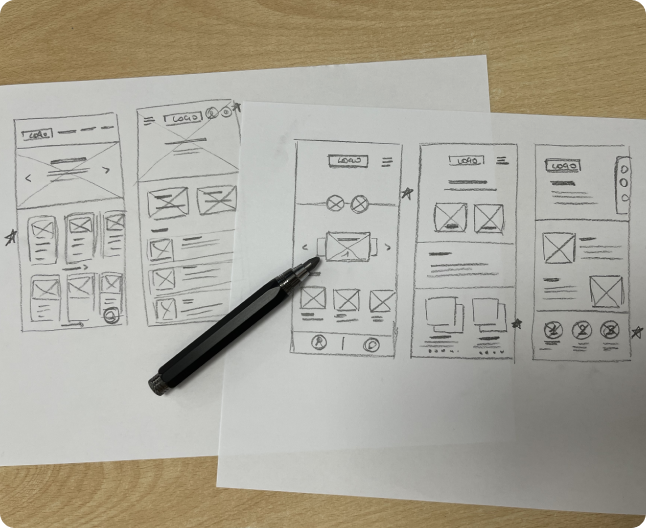 LOGO
LOGO
LOGO
LOGO
LOGO